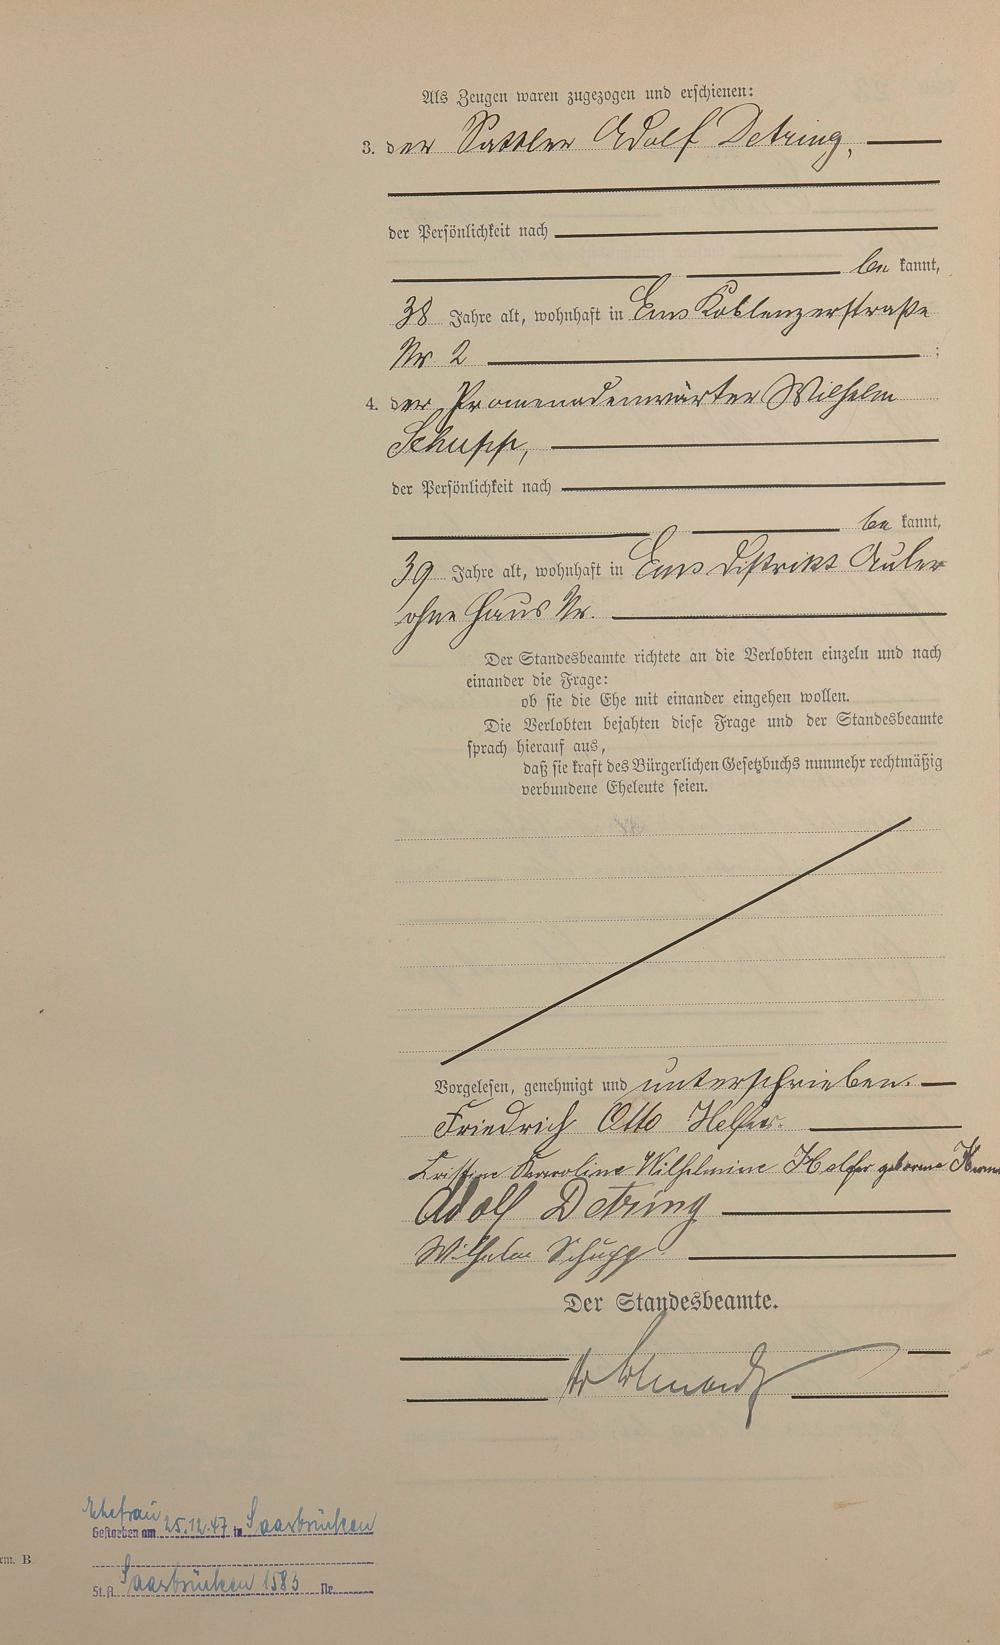 Als Zeugen waren zugezogen und erschienen:
3. der Sattler Adolf Detring,
der Persönlichkeit nach
be kannt,
38 Jahre alt, wohnhaft in Ems Koblenzerstraße
Nr 2 ;
4. der Promenadenwärter Wilhelm
Schupp,
der Persönlichkeit nach
be kannt,
39 Jahre alt, wohnhaft in Ems Distrikt Auler
ohne Haus Nr.
Der Standesbeamte richtete an die Verlobten einzeln und nach
einander die Frage:
ob sie die Ehe mit einander eingehen wollen.
Die Verlobten bejahten diese Frage und der Standesbeamte
sprach hierauf aus,
daß sie kraft des Bürgerlichen Gesetzbuchs nunmehr rechtmäßig
verbundene Eheleute seien.
Vorgelesen, genehmigt und unterschrieben.
Friedrich Otto Helfer.
Karoline Wilhelmine Helfer geborene
Adolf Detring
Wilhelm Schupp
Der Standesbeamte.
Ehefrau
Gestorben am 25.12.47 in Saarbrücken
St.A. Saarbrücken 1583 Nr.
rm. B